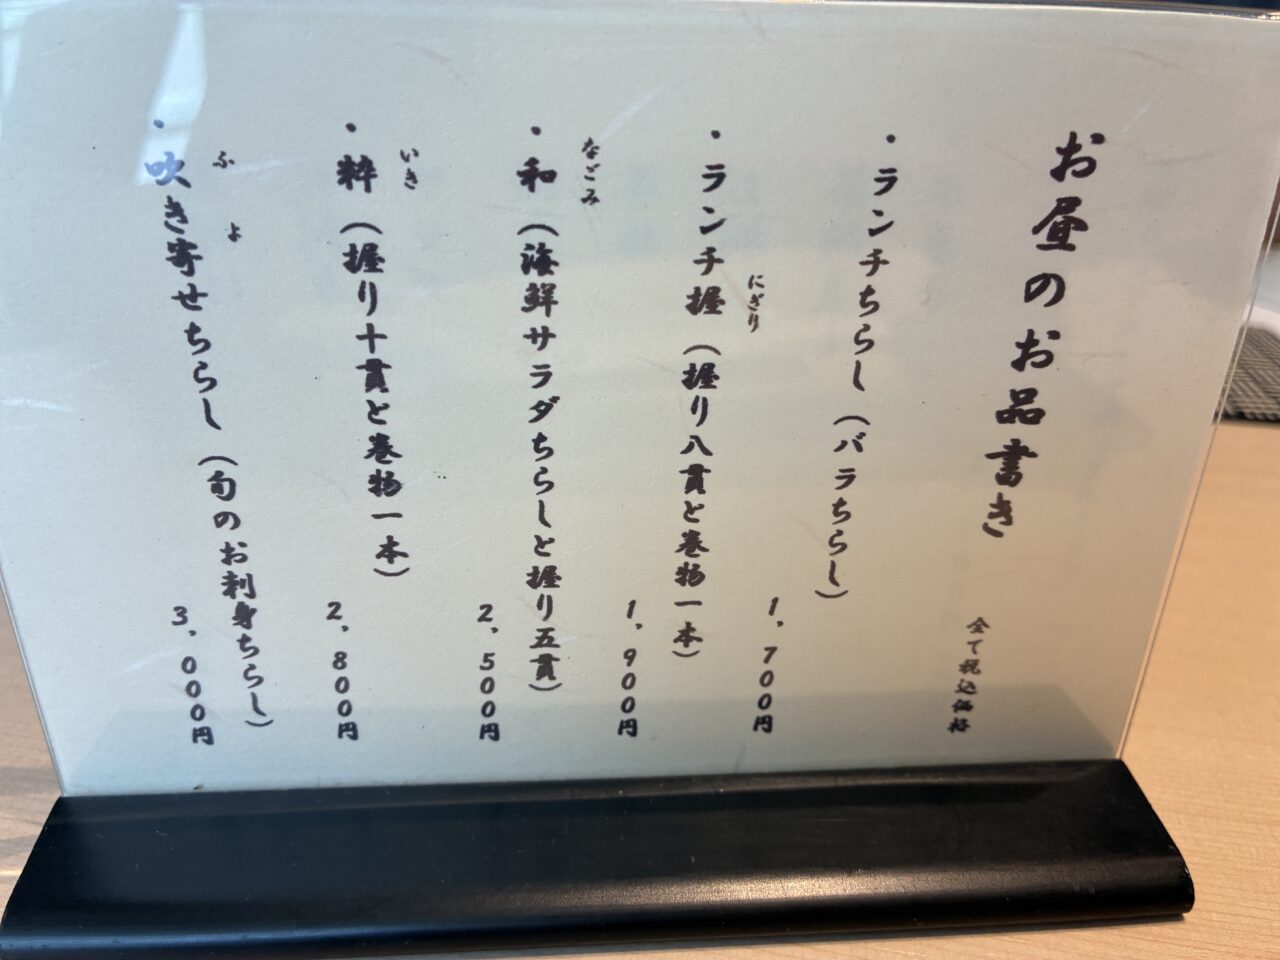 お昼のお品書き
全て税込価格
・ランチちらし（バラちらし）
1,700円
・ランチ握（握り八貫と巻物一本）
にぎり
1,900円
・和（海鮮サラダちらしと握り五貫）
なごみ
2,500円
・粋（握り十貫と巻物一本）
いき
2,800円
・吹き寄せちらし（旬のお刺身ちらし）
ふ よ
3,000円